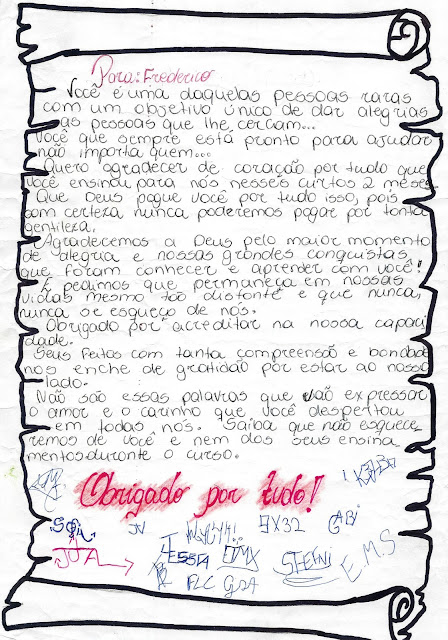 Para: Frederico
Você é uma daquelas pessoas raras
com um objetivo único de dar alegrias
as pessoas que lhe cercam...
Você que sempre está pronto para ajudar
não importa quem...
Quero agradecer de coração por tudo que
você ensinou para nós nesses curtos 2 meses
Que Deus pague você por tudo isso, pois
com certeza nunca poderemos pagar por tanta
gentileza.
Agradecemos a Deus pelo maior momento
de alegria e nossas grandes conquistas
que foram conhecer e aprender com você!
E pedimos que permaneça em nossas
vidas mesmo tão distante e que nunca,
nunca se esqueça de nós.
Obrigado por acreditar na nossa capaci
dade.
Seus feitos com tanta compreensão e bondade
nos enche de gratidão por estar ao nosso
lado.
Não são essas palavras que vão expressar
o amor e o carinho que você despertou
em todos nós. Saiba que não esquece
remos de você e nem dos seus ensina
mentos durante o curso.
Obrigado por tudo!
JV 9X32 GABi
JOTA JESSICA STEFNI E.M.S
PLC